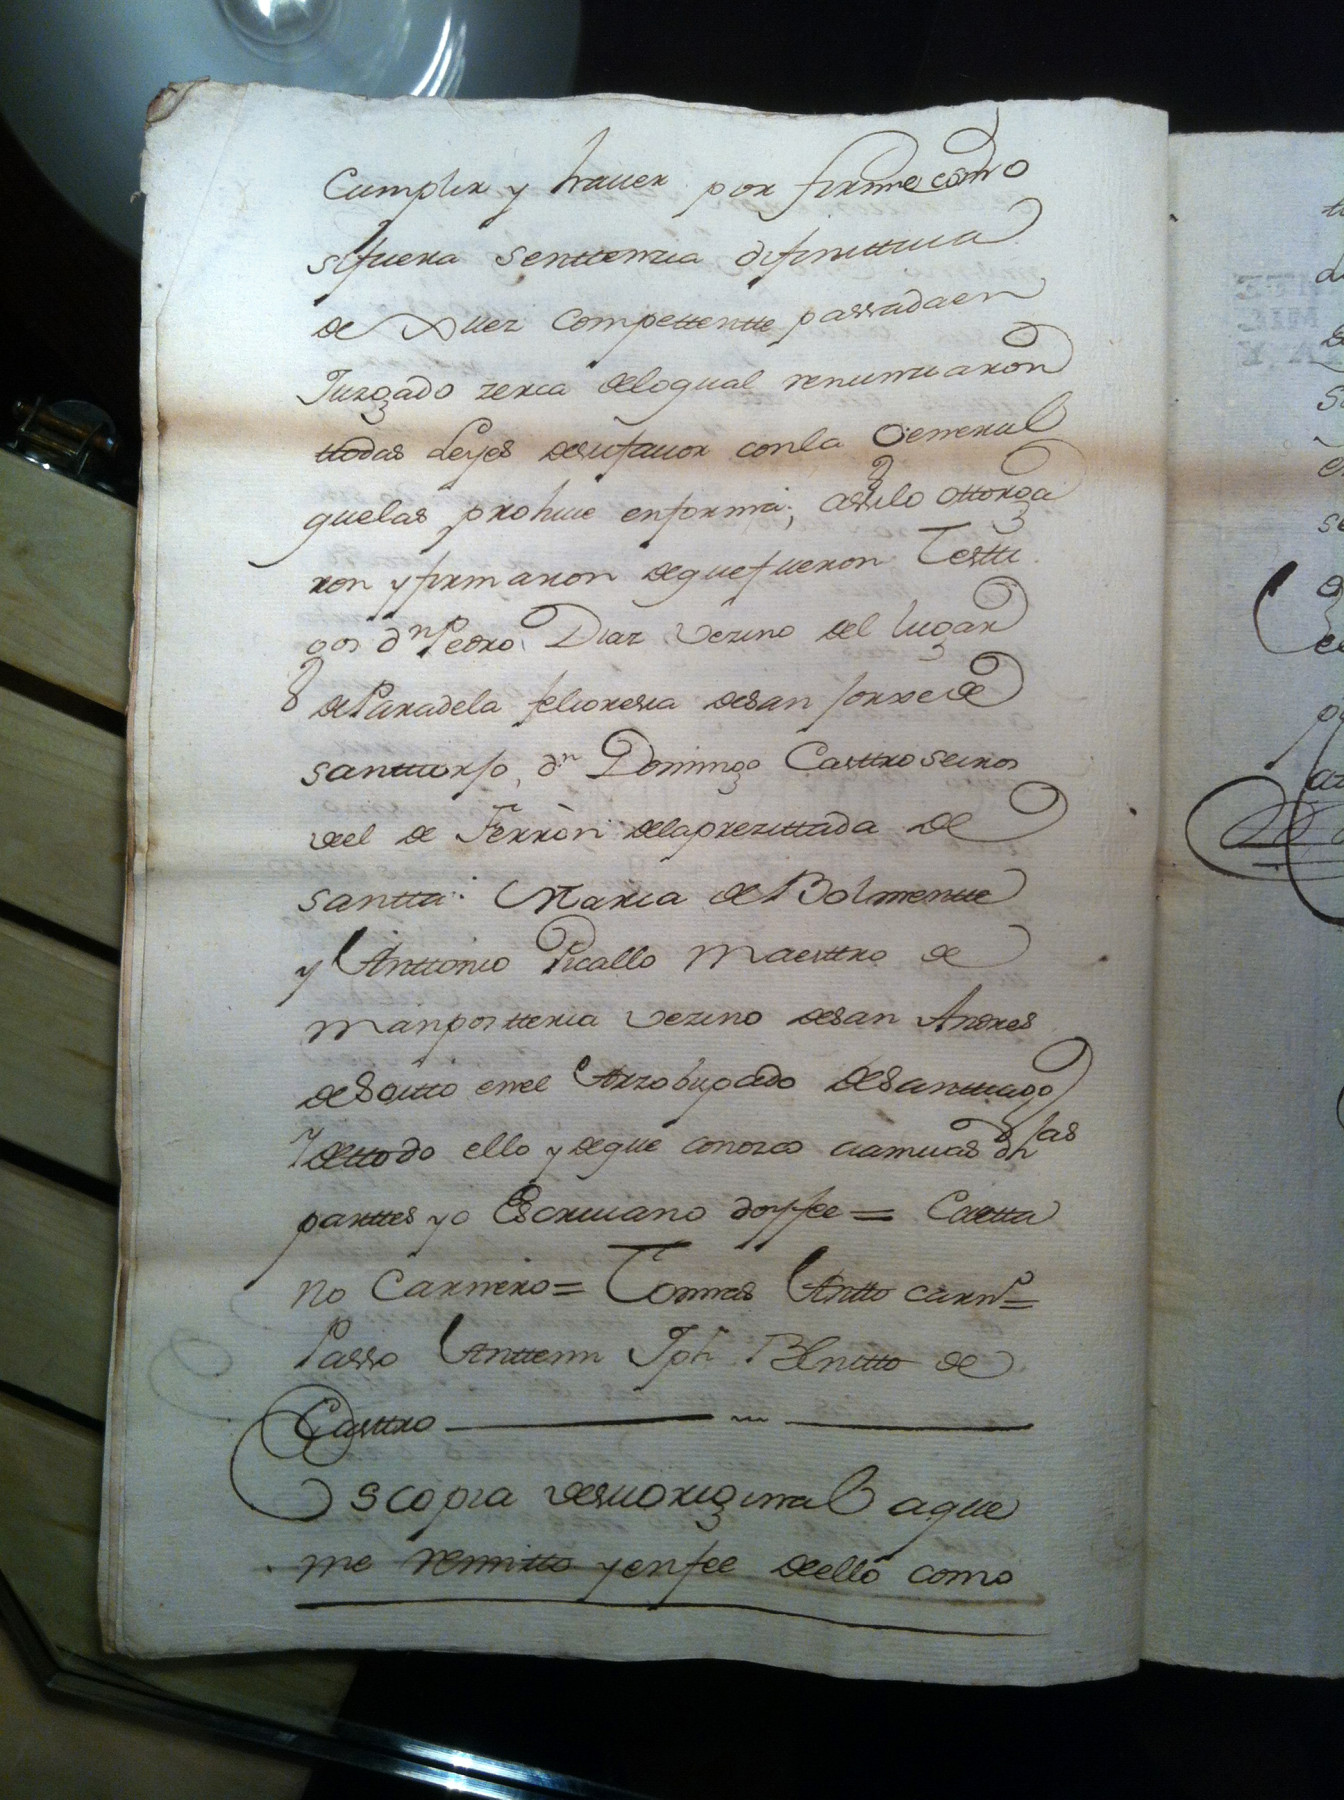 Cumplir y hauer por firme como
sifuera senttenzia difinittiua
de Xuez Compettentte passada en
Juzgado zerca delo qual renunziaron
ttodas Leyes desufauor conla General
quelas prohiue enforma; assilo ottorga
ron yfirmaron dequefueron Testti
gos dn Pedro Diaz Vezino del lugar
de Paradela feligresia desan Jorxe de
santtiorjo, dn Domingo Casttroseiros
del de Ferròn delaprezittada de
santta Maria de Bolmentte
y Anttonio Picallo Maesttro de
Manpostteria Vezino desan Andres
de Soutto enel Arzobispado desanttiago
Y dettodo ello y deque conozco aamuas dhas
parttes yo Escriuano doyfee = Caetta
no Carnero = Tomas Antto carnro =
Passo Anttemi Jph Benitto de
Casttro
Es copia desuoriginal aque
me remitto yenfee deello como